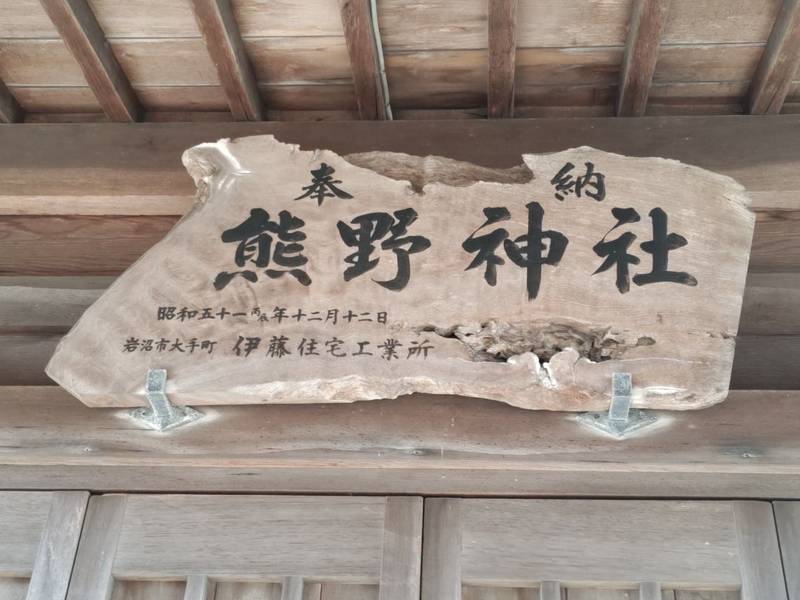 奉納
熊野神社
昭和五十一丙辰年十二月十二日
岩沼市大手町 伊藤住宅工業所